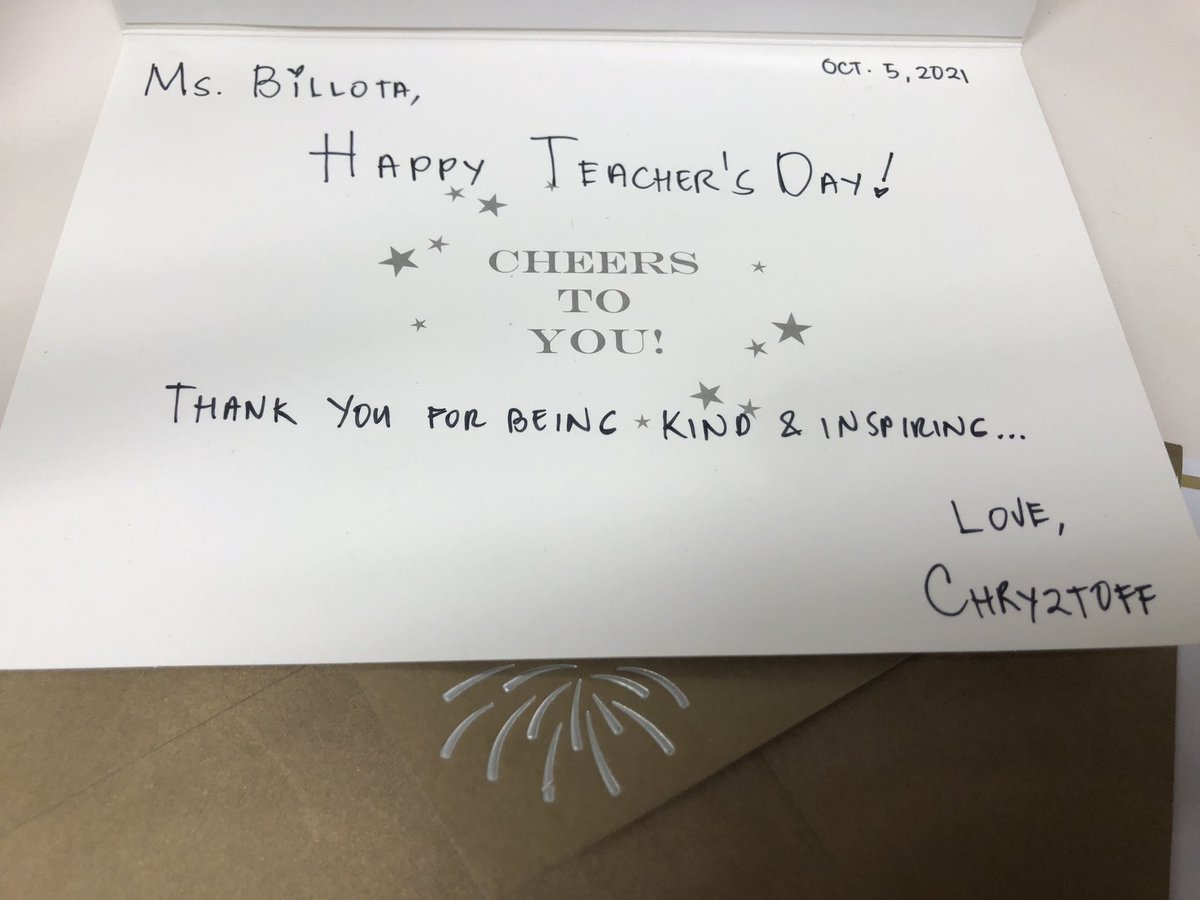 Ms. BiLLOTA,
OCT. 5, 2021
HAPPY TEACHER'S DAY!
CHEERS
TO
YOU!
THANK YOU FOR BEING KIND & INSPIRING...
LOVE,
CHRY2TOFF